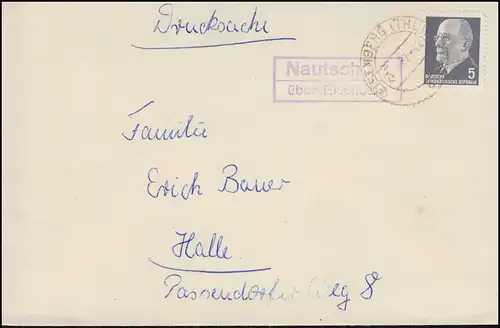 Drucksache
EISENBERG (THÜR
Nautsch
über Eisenb
5
DEUTSCHE
DEMOKRATISCHE REPUBLIK
Familie
Erich Bauer
Halle
Passendorfer Weg 8